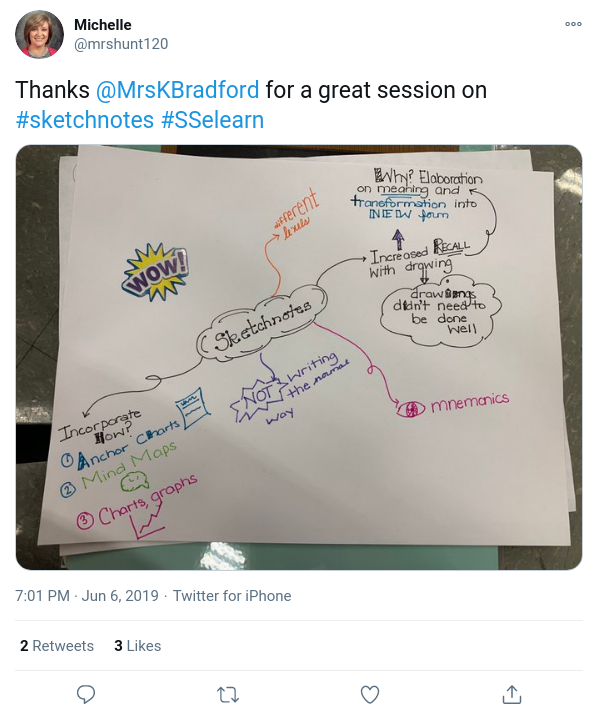 Michelle
@mrshunt120
Thanks @MrsKBradford for a great session on
#sketchnotes #SSelearn
WOW!
different
levels
Why? Elaboration
on meaning and
transformation into
NEW form
Increased RECALL
with drawing
drawings
didn't need to
be done
well
Sketchnotes
NOT writing
the normal
way
mnemonics
Incorporate
How?
1 Anchor Charts
2 Mind Maps
3 Charts, graphs
7:01 PM · Jun 6, 2019 · Twitter for iPhone
2 Retweets 3 Likes